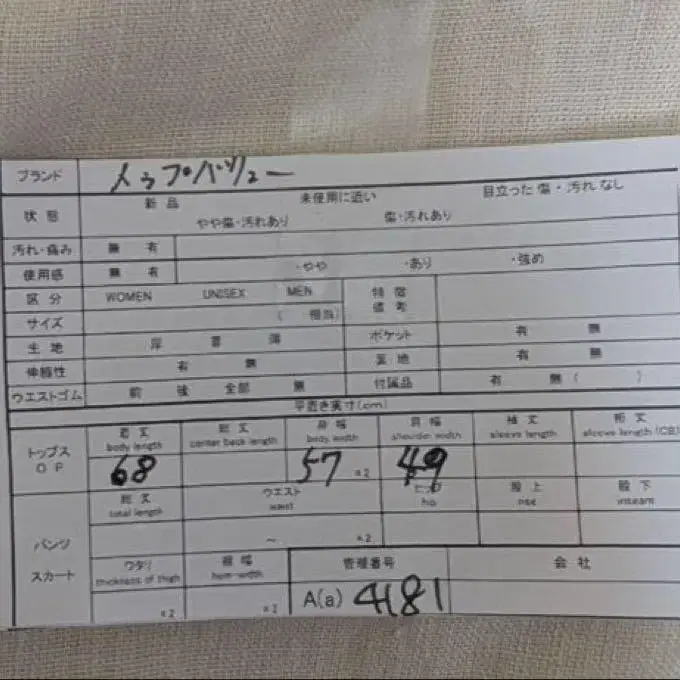 ブランド メゥプバリュー
状態 新品 未使用に近い 目立った傷・汚れなし
やや傷・汚れあり 傷・汚れあり
汚れ・痛み 無 有
使用感 無 有 ・やや ・あり ・強め
区分 WOMEN UNISEX MEN 特徴
備考
サイズ ( 相当)
生地 厚 普 薄 ポケット 有 無
伸縮性 有 無 裏地 有 無
ウエストゴム 前 後 全部 無 付属品 有 無 ( )
平置き実寸(cm)
トップス OP 着丈 body length 総丈 center back length 身幅 body width 肩幅 shoulder width 袖丈 sleeve length 裄丈 sleeve length (CB)
68 57 ×2 49
パンツ スカート 総丈 total length ウエスト waist ヒップ hip 股上 rise 股下 inseam
~ ×2
ワタリ thickness of thigh 裾幅 hem width 管理番号 会社
×2 ×2 A(a) 4181